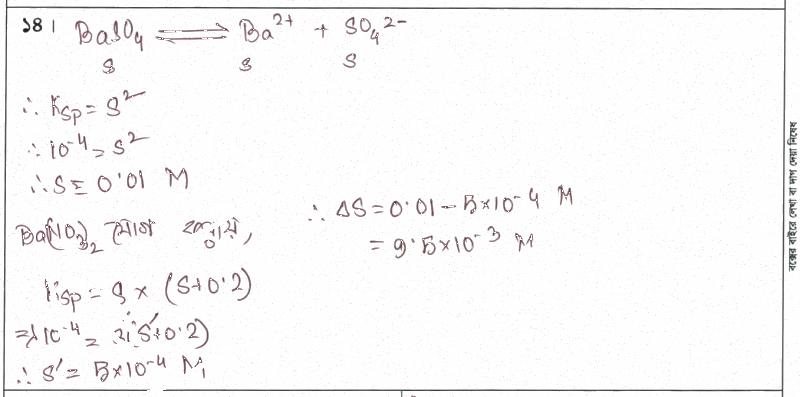 ১৪। BaSO4 ⇌ Ba²⁺ + SO₄²⁻
S S S
∴ Ksp = S²
∴ 10⁻⁴ = S²
∴ S = 0.01 M
Ba(NO₃)₂ যোগ করায়,
Ksp = S × (S+0.2)
⇒ 10⁻⁴ = S'(S'+0.2)
∴ S' = 5×10⁻⁴ M
∴ ΔS = 0.01 – 5×10⁻⁴ M
= 9.5×10⁻³ M
বক্সের বাইরে লেখা বা দাগ দেয়া নিষেধ